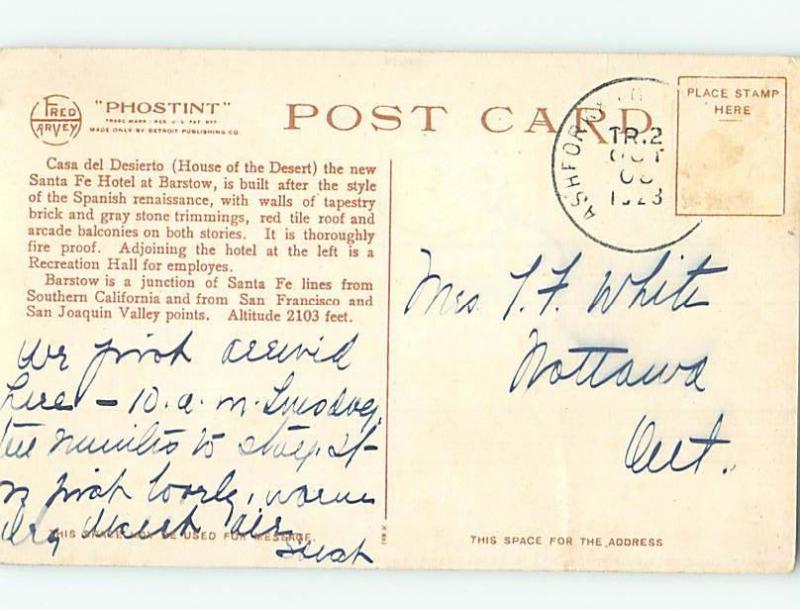 FRED HARVEY
"PHOSTINT"
TRADE MARK REG. U.S. PAT. OFF.
MADE ONLY BY DETROIT PUBLISHING CO.
POST CARD
PLACE STAMP
HERE
ASHFOR
TR.2
OCT
1923
Casa del Desierto (House of the Desert) the new
Santa Fe Hotel at Barstow, is built after the style
of the Spanish renaissance, with walls of tapestry
brick and gray stone trimmings, red tile roof and
arcade balconies on both stories. It is thoroughly
fire proof. Adjoining the hotel at the left is a
Recreation Hall for employes.
Barstow is a junction of Santa Fe lines from
Southern California and from San Francisco and
San Joaquin Valley points. Altitude 2103 feet.
We just arrived
here - 10. a. m. Tuesday.
ten minutes to stay. It
is just lovely, warm
dry desert air
THIS SPACE MAY BE USED FOR MESSAGE.
Mrs. T. F. White
Nottawa
Ont.
THIS SPACE FOR THE ADDRESS